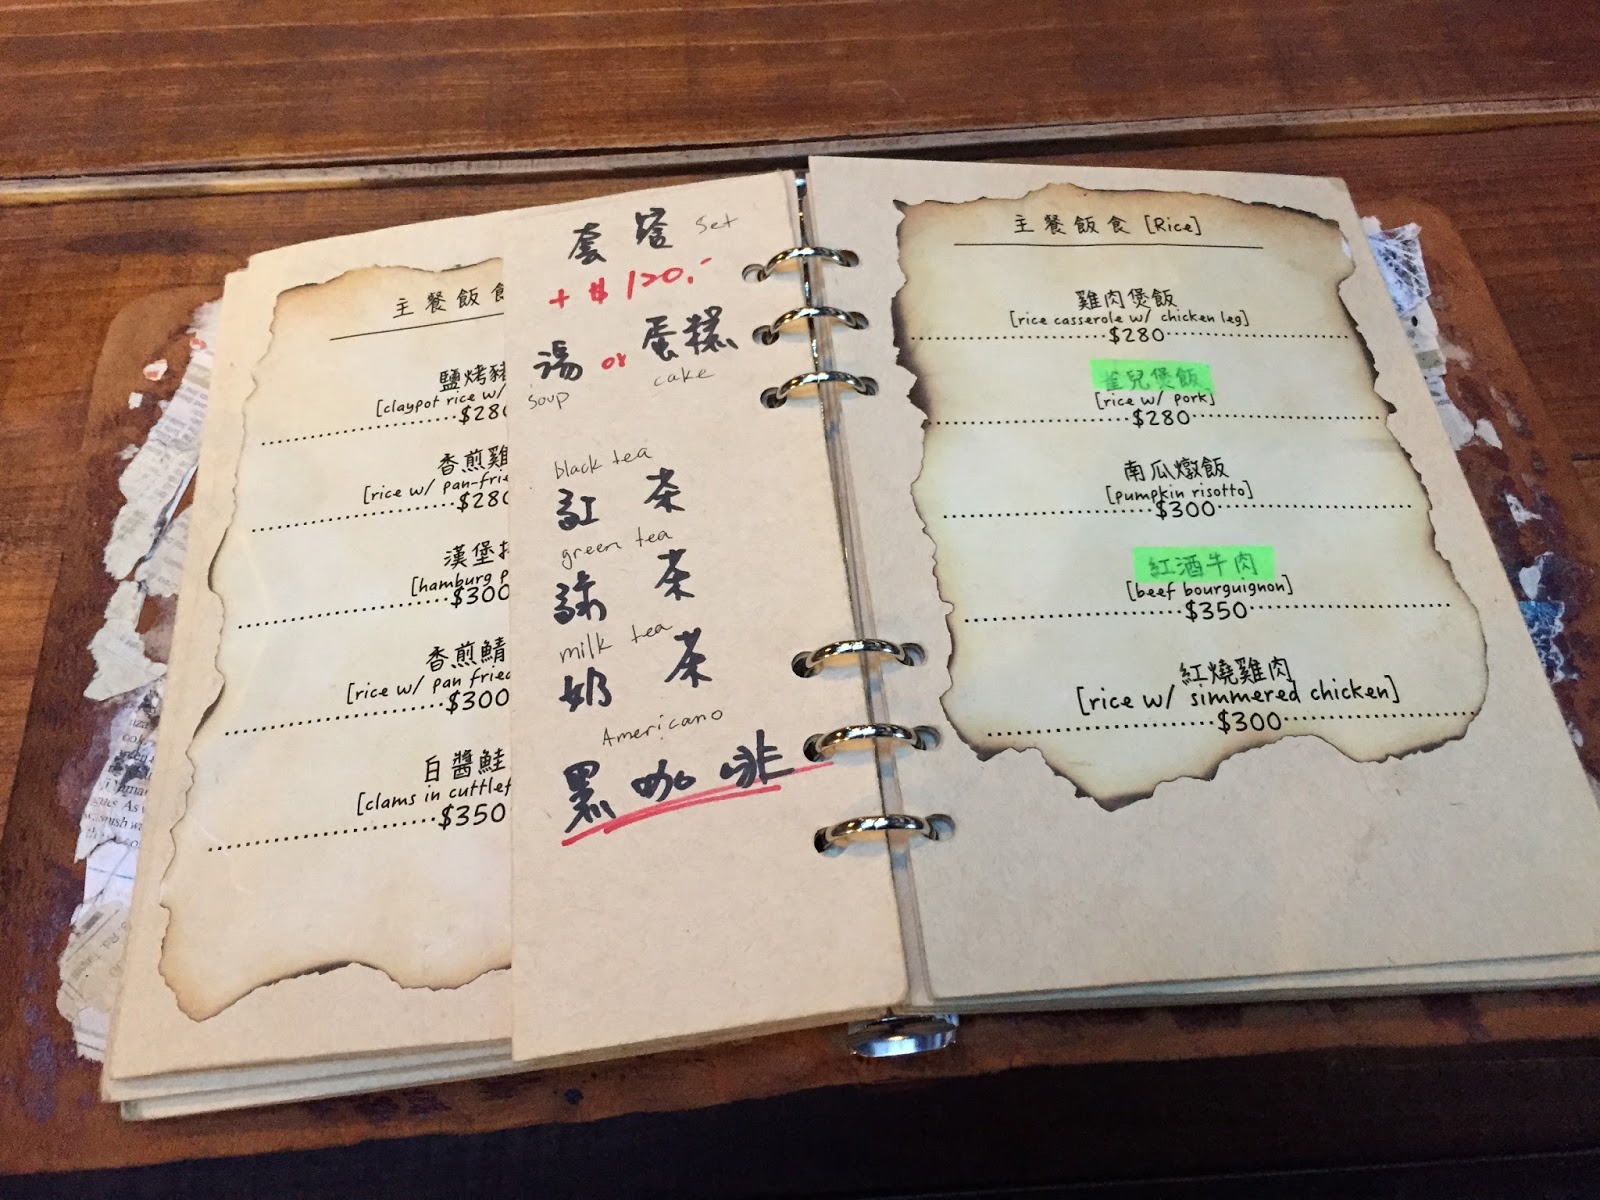 主餐飯食
鹽烤豬
[claypot rice w/
$280
香煎雞
[rice w/ pan-frie
$280
漢堡排
[hamburg p
$300
香煎鯖
[rice w/ pan fried
$300
白醬鮭
[clams in cuttlef
$350
套餐 Set
+$120.-
湯 or 蛋糕
soup cake
black tea
紅茶
green tea
綠茶
milk tea
奶茶
Americano
黑咖啡
主餐飯食 [Rice]
雞肉煲飯
[rice casserole w/ chicken leg]
$280
雀兒煲飯
[rice w/ pork]
$280
南瓜燉飯
[pumpkin risotto]
$300
紅酒牛肉
[beef bourguignon]
$350
紅燒雞肉
[rice w/ simmered chicken]
$300